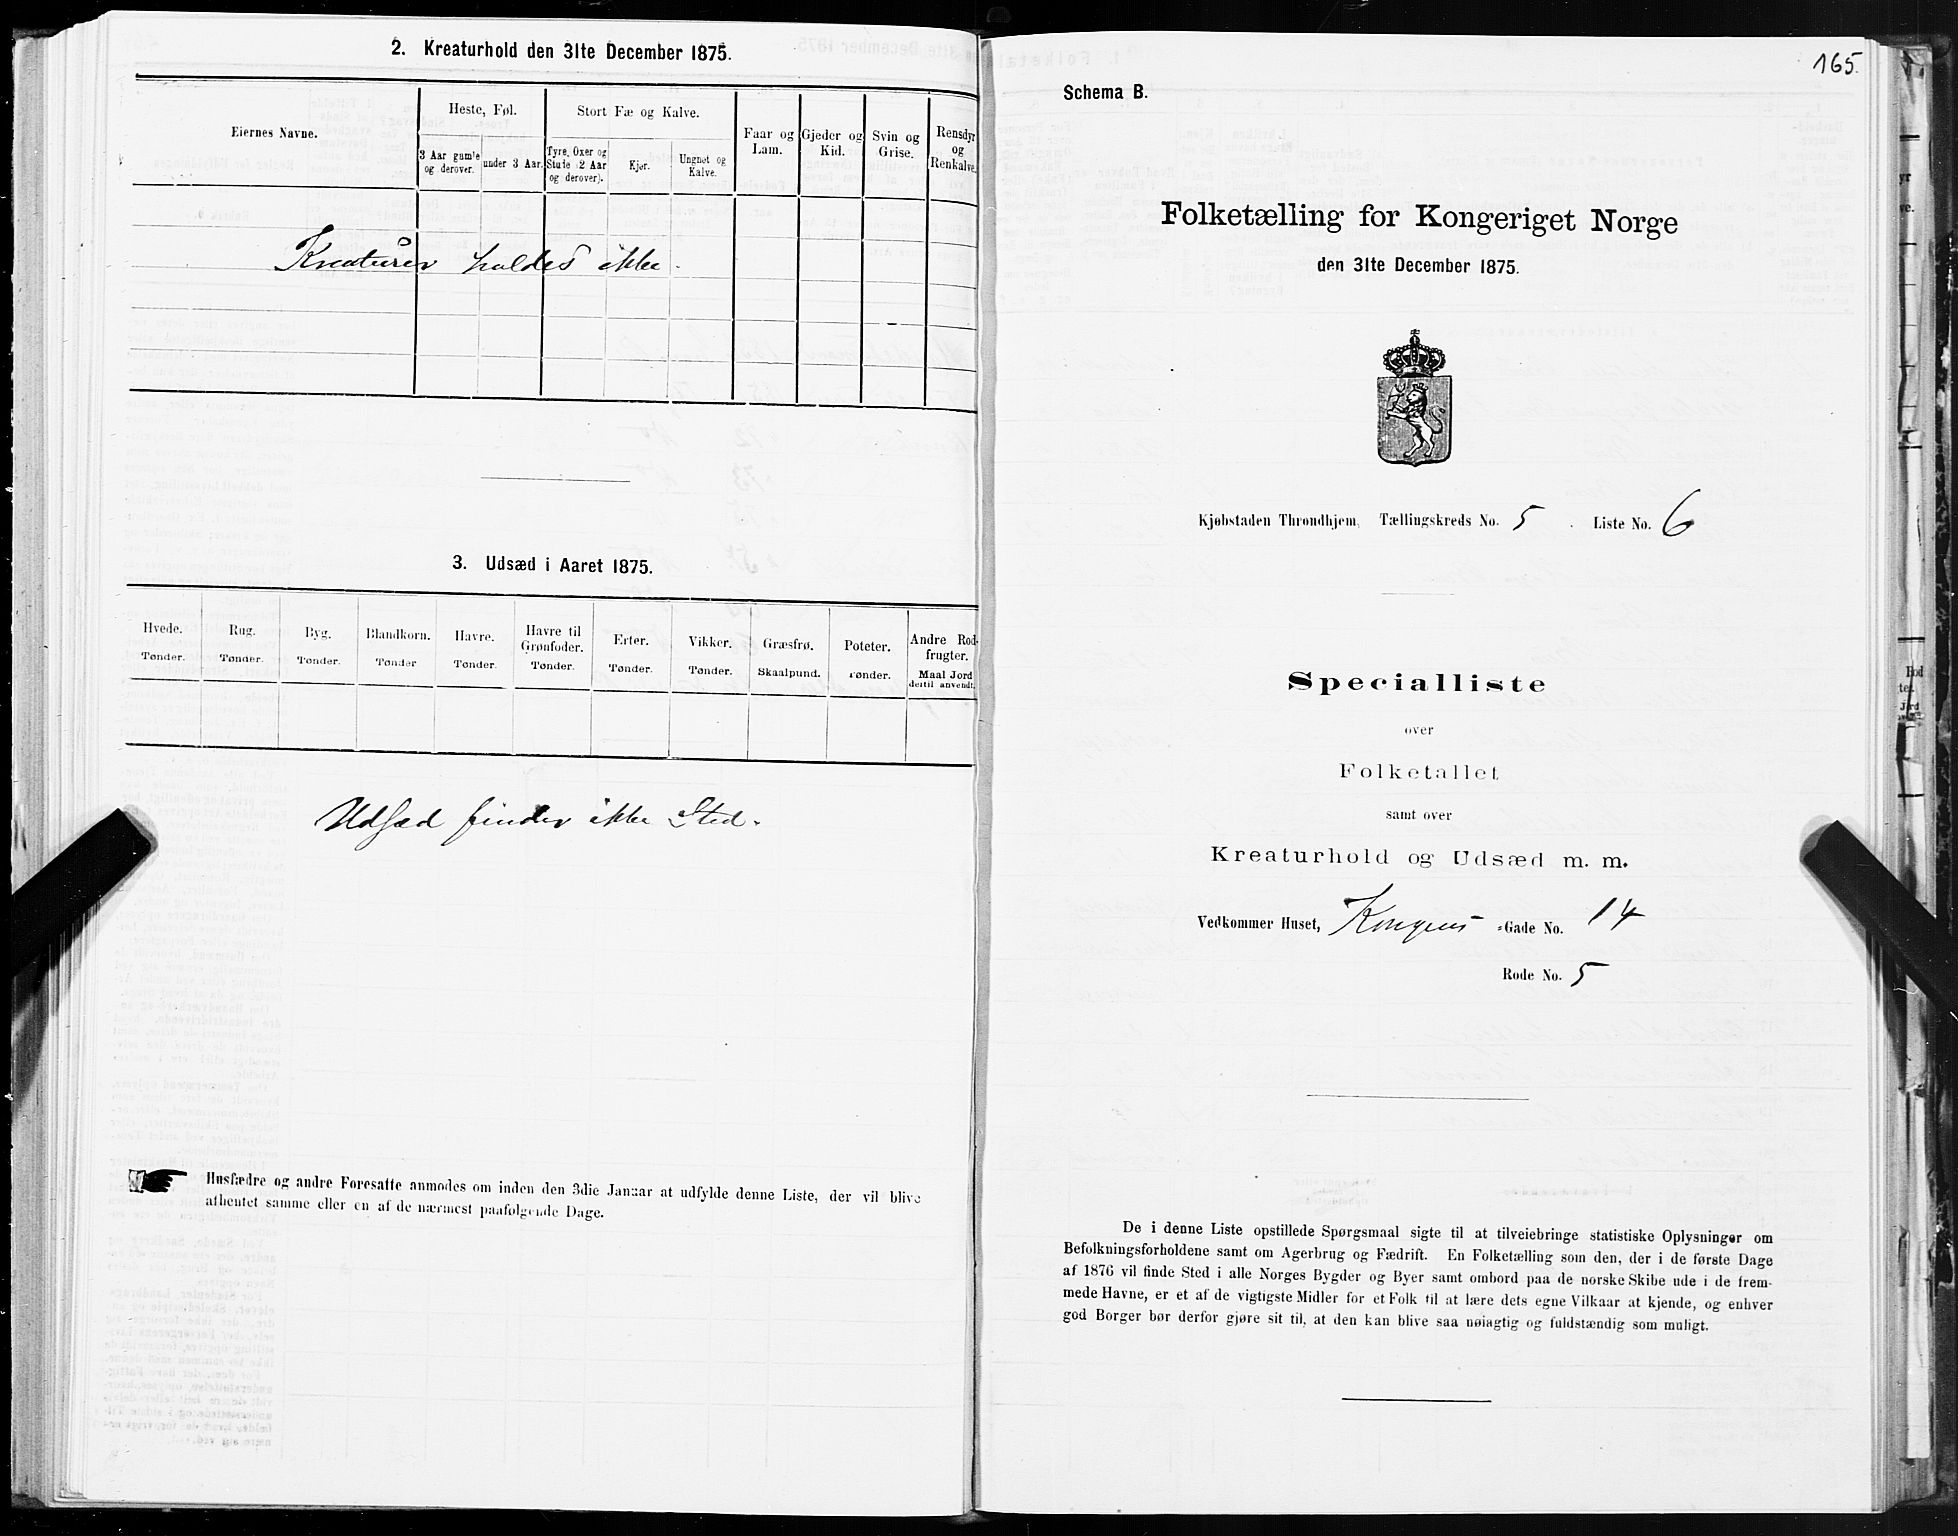 2. Kreaturhold den 31te December 1875.
Eiernes Navne.
Heste, Føl.
Stort Fæ og Kalve.
Faar og Lam.
Gjeder og Kid.
Svin og Grise.
Rensdyr og Renkalve.
3 Aar gamle og derover.
under 3 Aar.
Tyre, Oxer og Stude (2 Aar og derover).
Kjør.
Ungnet og Kalve.
Kreaturer holdes ikke.
3. Udsæd i Aaret 1875.
Hvede. Rug. Byg. Blandkorn. Havre. Havre til Grønfoder. Erter. Vikker. Græsfrø. Poteter. Andre Rodfrugter.
Tønder. Tønder. Tønder. Tønder Tønder. Tønder. Tønder. Tønder. Skaalpund. Tønder. Maal Jord dertil anvendt.
Udsæd finder ikke Sted.
Husfædre og andre Foresatte anmodes om inden den 3die Januar at udfylde denne Liste, der vil blive
afhentet samme eller en af de nærmest paafølgende Dage.
165.
Schema B.
Folketælling for Kongeriget Norge
den 31te December 1875.
Kjøbstaden Throndhjem, Tællingskreds No. 5. Liste No. 6
Specialliste
over
Folketallet
samt over
Kreaturhold og Udsæd m. m.
Vedkommer Huset, Kongens -Gade No. 14
Rode No. 5
De i denne Liste opstillede Spørgsmaal sigte til at tilveiebringe statistiske Oplysninger om
Befolkningsforholdene samt om Agerbrug og Fædrift. En Folketælling som den, der i de første Dage
af 1876 vil finde Sted i alle Norges Bygder og Byer samt ombord paa de norske Skibe ude i de frem-
mede Havne, er et af de vigtigste Midler for et Folk til at lære dets egne Vilkaar at kjende, og enhver
god Borger bør derfor gjøre sit til, at den kan blive saa nøiagtig og fuldstændig som muligt.